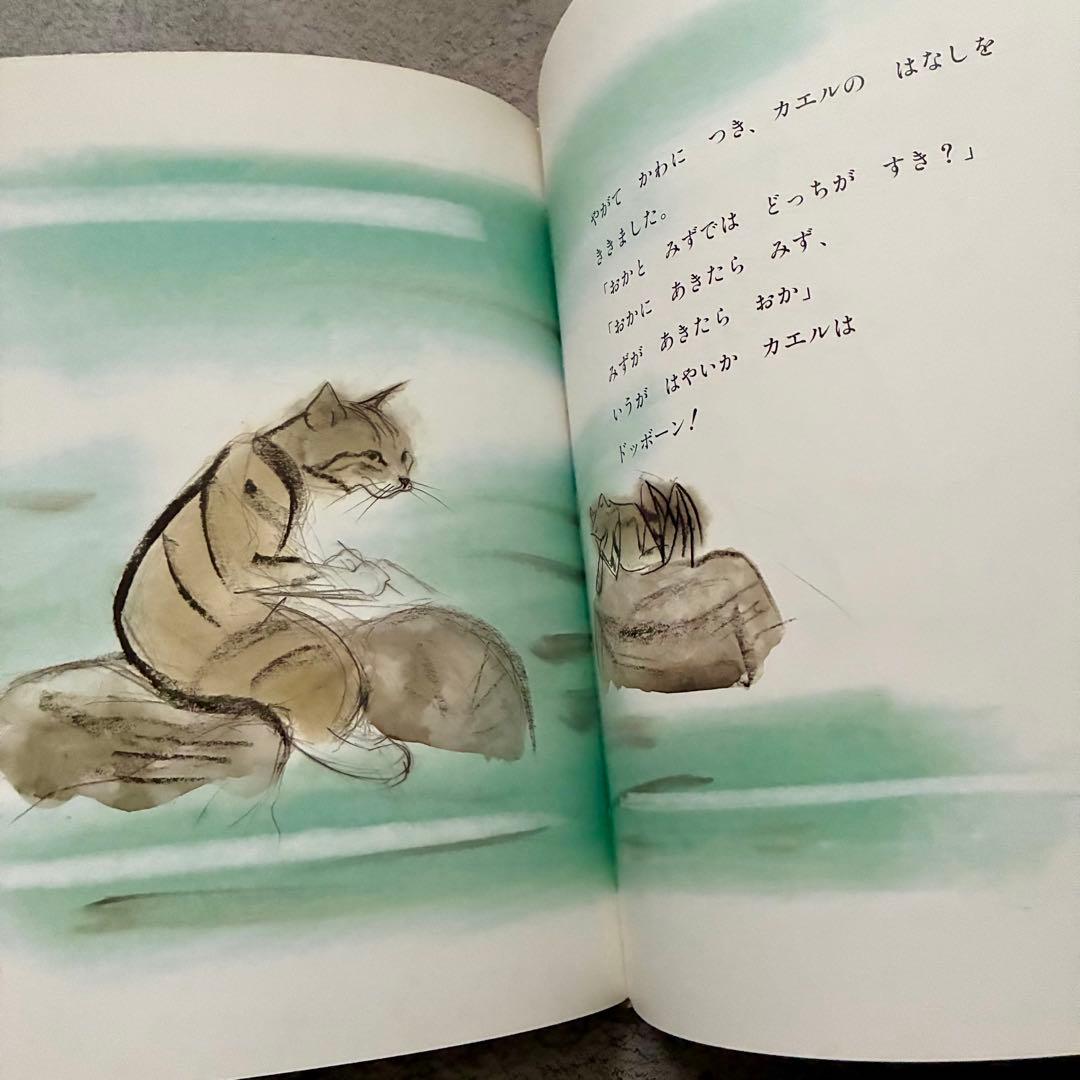 やがて　かわに　つき、カエルの　はなしを
ききました。
「おかと　みずでは　どっちが　すき？」
「おかに　あきたら　みず、
みずが　あきたら　おか」
いうが　はやいか　カエルは
ドッボーン！